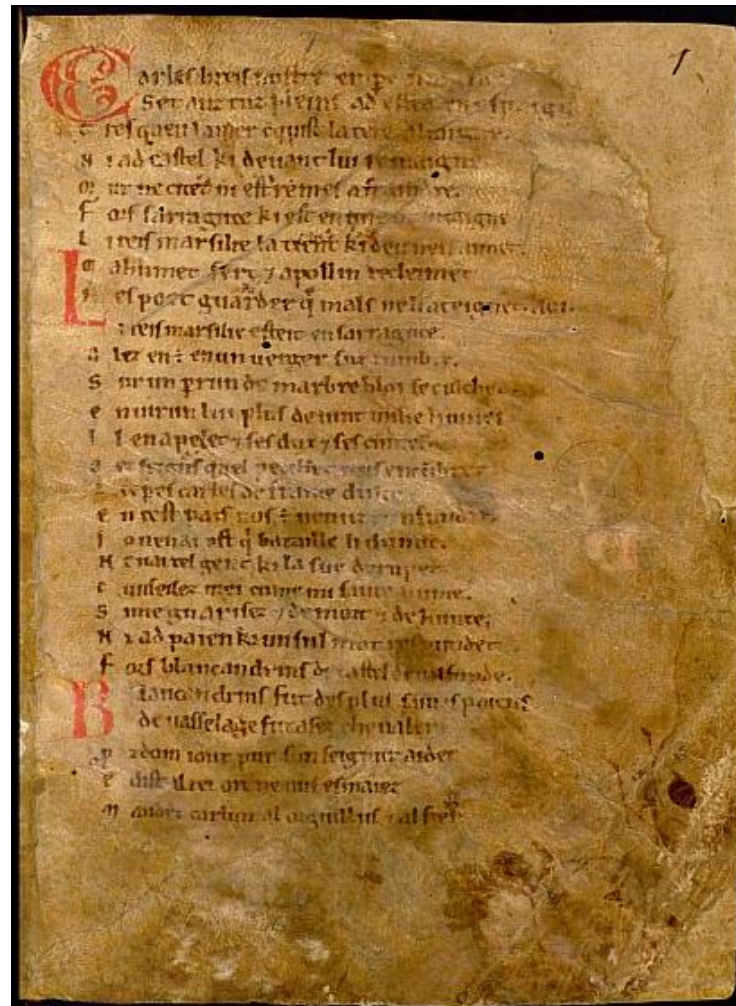 1
Carles li reis nostre emper
Set anz tuz pleins ad estet en espaig
Tresquen la mer cquist la tere altaigne.
N i ad castel ki devant lui remaigne
Mur ne citet ni est remes a fraindre.
Fors sarraguce ki est en une muntaigne
Li reis marsilie la tient ki deu nen aimet.
Mahumet sert 7 apollin recleimet
Nes poet guarder q̃ mals ne li ateignet. Aoi.
Li reis marsilie esteit en sarraguce.
Alez en ÷ en un verger suz lumbre.
Sur un perrun de marbre bloi se culchet
Envirun lui plus de vint milie humes
Il en apelet 7 ses dux 7 ses cuntes
Oez seignurs quel pecchet nus encumbret
Li empes carles de france dulce
En cest pais nos ÷ venuz cunfundre.
Jo nen ai ost q̃ bataille li dunne.
N ai tel gent ki la sue derumpet
Cunseilez mei cume mi saive hume.
Si me guarisez 7 de mort 7 de hunte.
N i ad paien ki un sul mot respundet
Fors blancandrins de castel de valfunde.
Blancandrins fut des plus saives paiens
De vasselage fut asez chevaler
Prodom i out pur sun seignur aider
E dist al rei ore ne vus esmaiez
Mandez carlun al orguillus 7 al fier